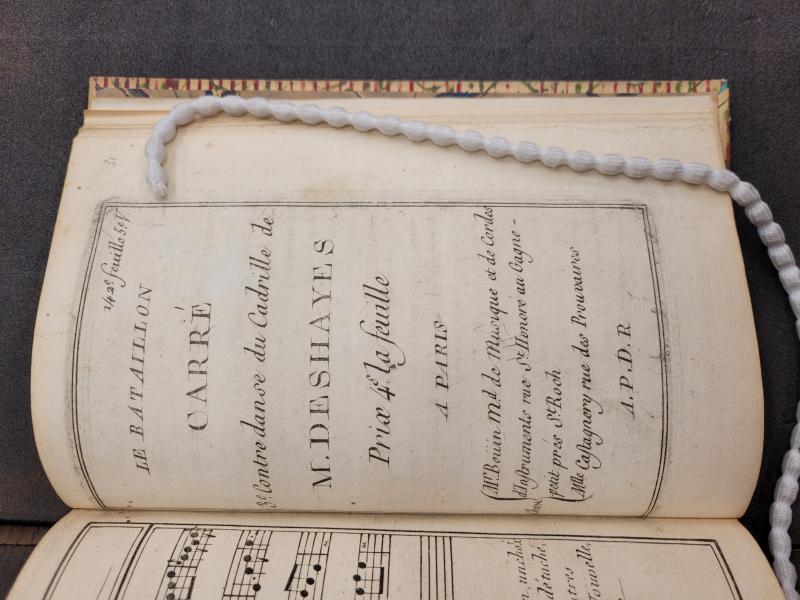 31
142e. feuille 5e. V.
LE BATAILLON
CARRÉ
3e. Contredanse du Cadrille de
M. DESHAYES
Prix 4s. la feuille
A PARIS
Chez
Mr. Bouin Md. de Musique et de Cordes
d'Instruments rue St. Honoré au Gagne-
petit près St. Roch
Mlle Castagnery rue des Prouvaires
A. P. D. R.
, un chaix
détaché,